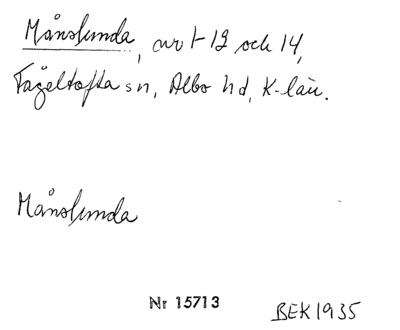 Månslunda, avs t 12 och 14,
Fågeltofta sn, Albo hd, K-län.
Månslunda
Nr 15713
BEK 1935